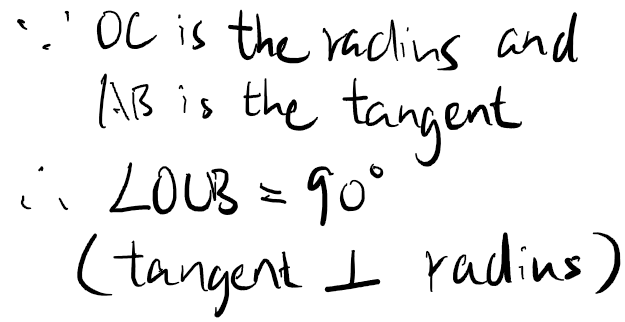 ∵ OC is the radius and
AB is the tangent
∴ ∠OCB = 90°
(tangent ⊥ radius)